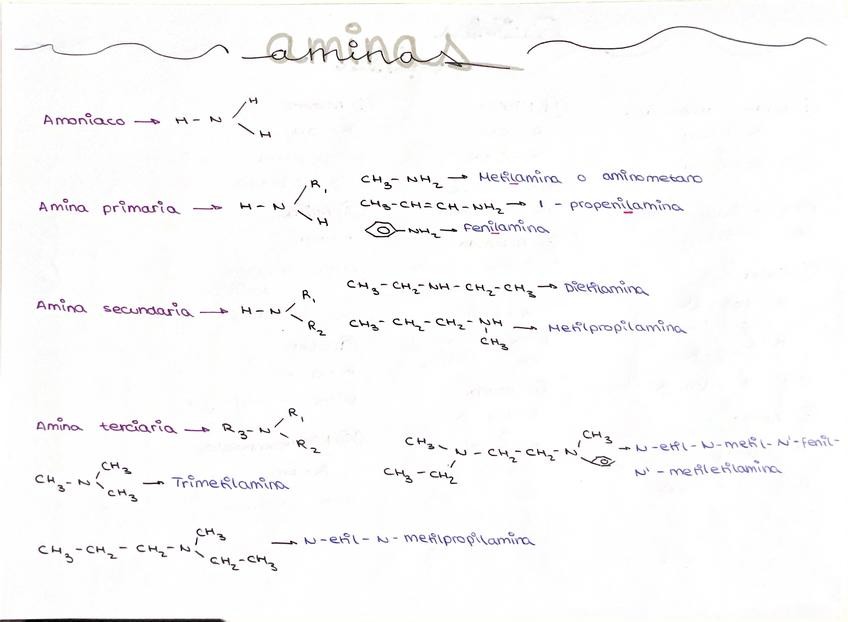 aminas
Amoniaco → H - N H H
Amina primaria → H - N R₁ H
CH₃ - NH₂ → Metilamina o aminometano
CH₃-CH=CH-NH₂ → 1 - propenilamina
-NH₂ → Fenilamina
Amina secundaria → H - N R₁ R₂
CH₃ - CH₂ - NH - CH₂ - CH₃ → Dietilamina
CH₃ - CH₂ - CH₂ - NH → Metilpropilamina
CH₃
Amina terciaria → R₃ - N R₁ R₂
CH₃ - N CH₃ CH₃ → Trimetilamina
CH₃ - N - CH₂ - CH₂ - N CH₃ → N - etil - N - metil - N' - fenil -
CH₃ - CH₂ N' - metiletilamina
CH₃ - CH₂ - CH₂ - N CH₃ CH₂ - CH₃ → N - etil - N - metilpropilamina